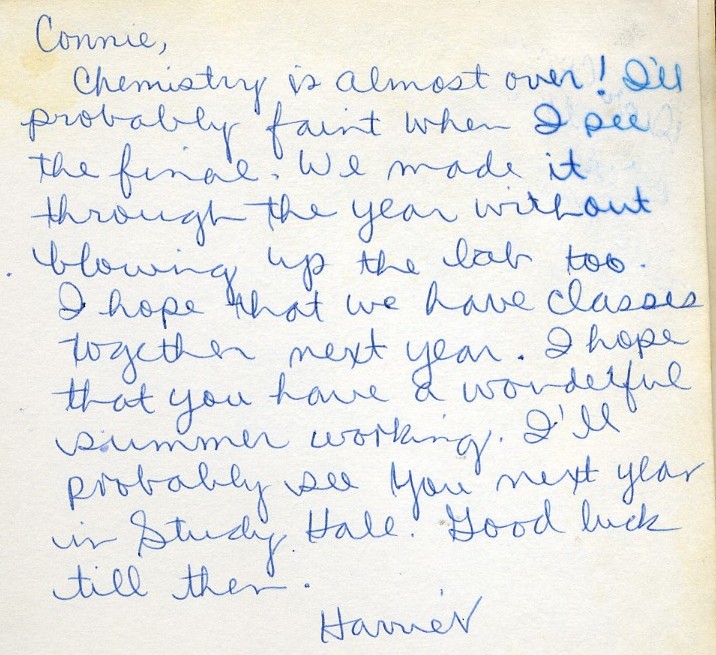 Connie,
Chemistry is almost over! I'll
probably faint when I see
the final. We made it
through the year without
blowing up the lab too.
I hope that we have classes
together next year. I hope
that you have a wonderful
summer working. I'll
probably see you next year
in Study Hall. Good luck
till then.
Harriet